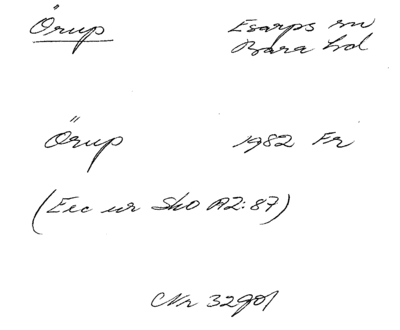 Örup Esarps sn
Bara hd
Örup 1982 Fr
(Exc ur SkO A2:87)
Nr 32901